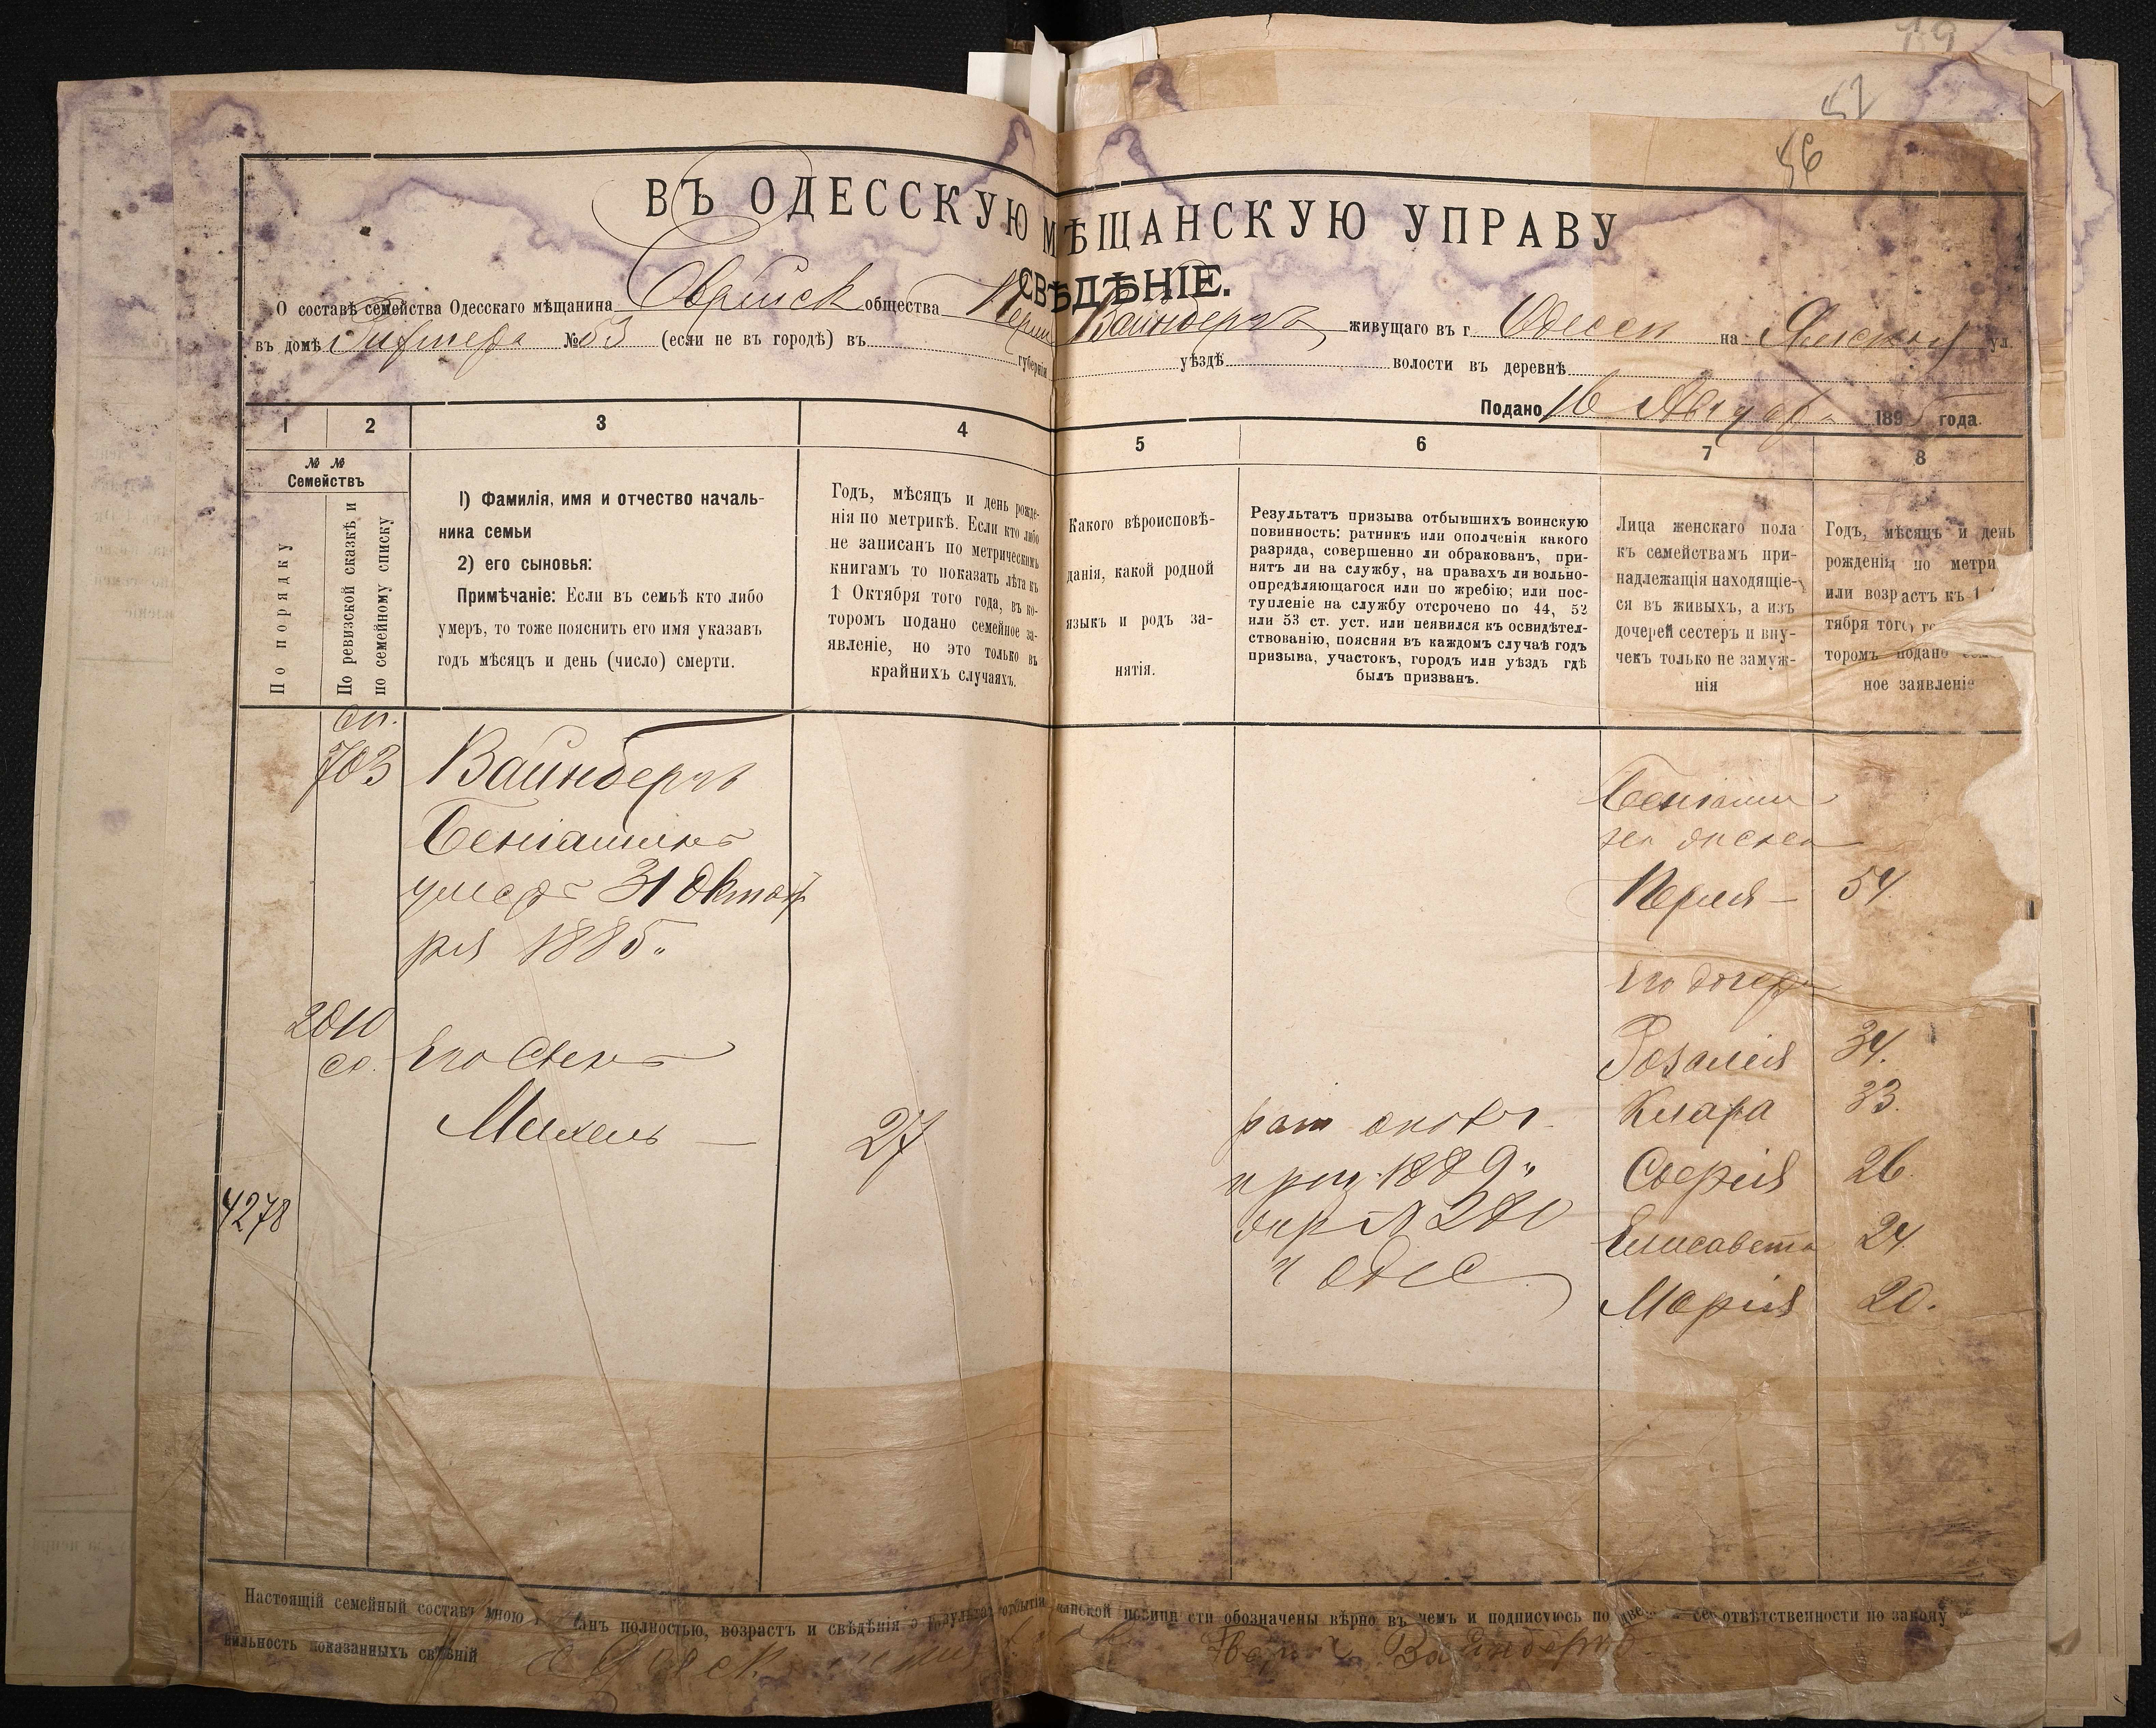 19
52
56
ВЪ ОДЕССКУЮ МѢЩАНСКУЮ УПРАВУ
СВѢДѢНІЕ.
О составѣ семейства Одесскаго мѣщанина Еврейск общества Перли Вайнберга живущаго въ г. Одессы на Ямской ул.
въ домѣ №53 (если не въ городѣ) въ губерніи уѣздѣ волости въ деревнѣ
Подано 16 Августа 1895 года.
1 2 3 4 5 6 7 8
№ № Семействъ
По порядку
По ревизской сказкѣ и по семейному списку
1) Фамилія, имя и отчество началь-
ника семьи
2) его сыновья:
Примѣчаніе: Если въ семьѣ кто либо
умеръ, то тоже пояснить его имя указавъ
годъ мѣсяцъ и день (число) смерти.
Годъ, мѣсяцъ и день рожде-
нія по метрикѣ. Если кто либо
не записанъ по метрическимъ
книгамъ то показать лѣта къ
1 Октября того года, въ ко-
торомъ подано семейное за-
явленіе, но это только въ
крайнихъ случаяхъ.
Какого вѣроисповѣ-
данія, какой родной
языкъ и родъ за-
нятія.
Результатъ призыва отбывшихъ воинскую
повинность: ратникъ или ополченія какого
разряда, совершенно ли обракованъ, при-
нятъ ли на службу, на правахъ ли вольно-
опредѣляющагося или по жребію; или пос-
тупленіе на службу отсрочено по 44, 52
или 53 ст. уст. или неявился къ освидѣтел-
ствованію, поясняя въ каждомъ случаѣ годъ
призыва, участокъ, городъ или уѣздъ гдѣ
былъ призванъ.
Лица женскаго пола
къ семействамъ при-
надлежащія находящіе-
ся въ живыхъ, а изъ
дочерей сестеръ и вну-
чекъ только не замуж-
нія
Годъ, мѣсяцъ и день
рожденія по метри
или возрастъ къ 1
тября того го
торомъ подано сем
ное заявленіе
сп.
703 Вайнбергъ
Беніаминъ
умеръ 31 Октяб
ря 1885.
2010
сп. Его Сынъ
Михель — 27
4278
рат ополч.
приз. 1889.
жер № 280
г Одес
Беніамин
жена
Перля — 54.
Его дочери
Розалія 34.
Клара 33.
Софія 26.
Елисавета 24.
Марія 20.
Настоящій семейный составъ мною анъ полностью, возрастъ и свѣдѣнія о результа отбытія инской повинн сти обозначены вѣрно въ чемъ и подписуюсь по отвѣтственности по закону
вильность показанныхъ свѣдѣній Вайнбергъ